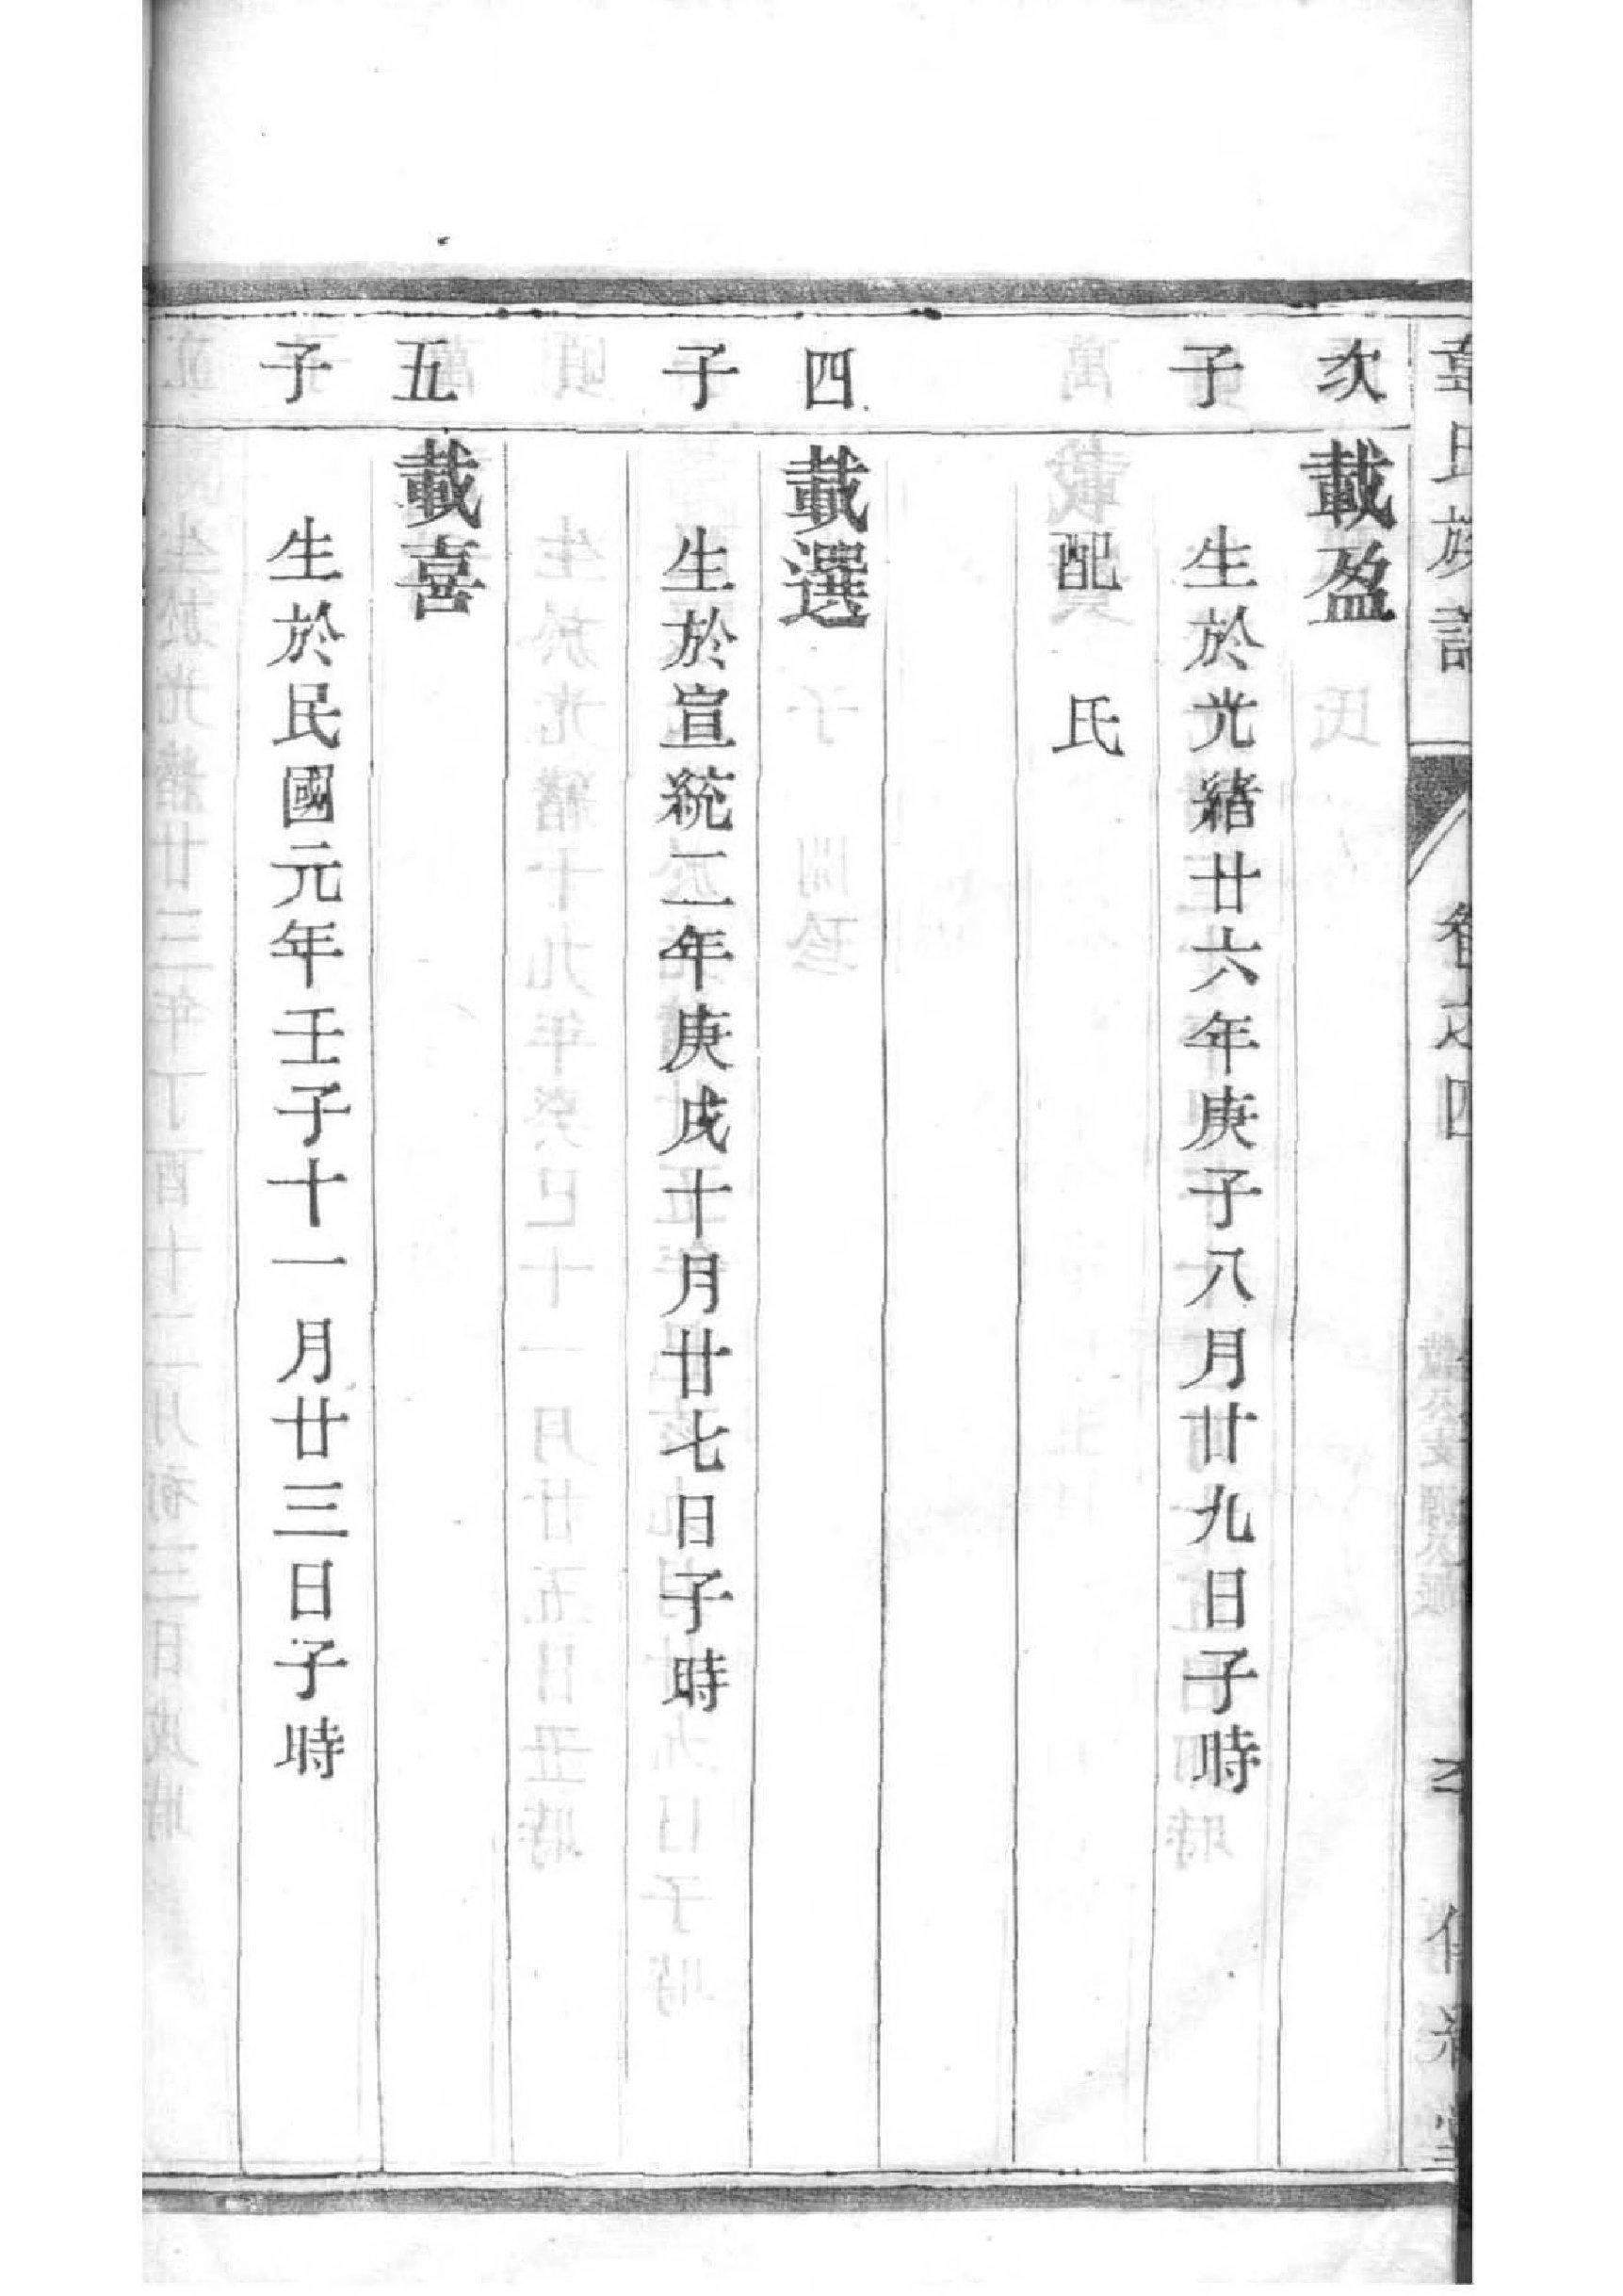 氏族譜
卷之四
次子
載盈
生於光緒廿六年庚子八月廿九日子時
配 氏
四子
載選
生於宣統二年庚戌十月廿七日子時
五子
載喜
生於民國元年壬子十一月廿三日子時